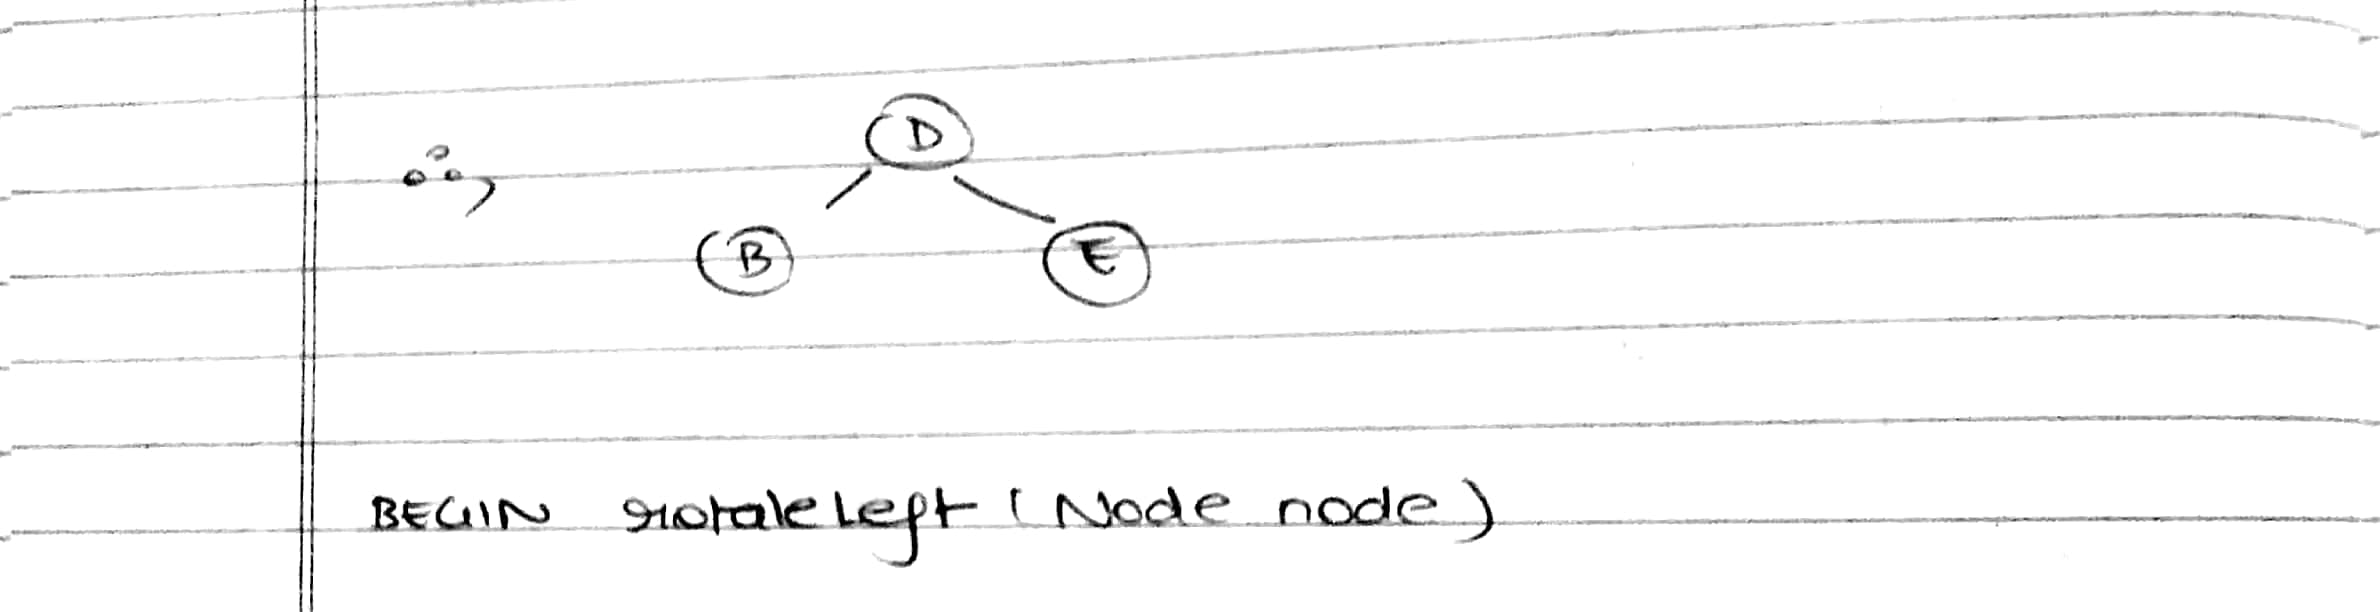 ∴,
D
B E
BEGIN rotateleft (Node node)